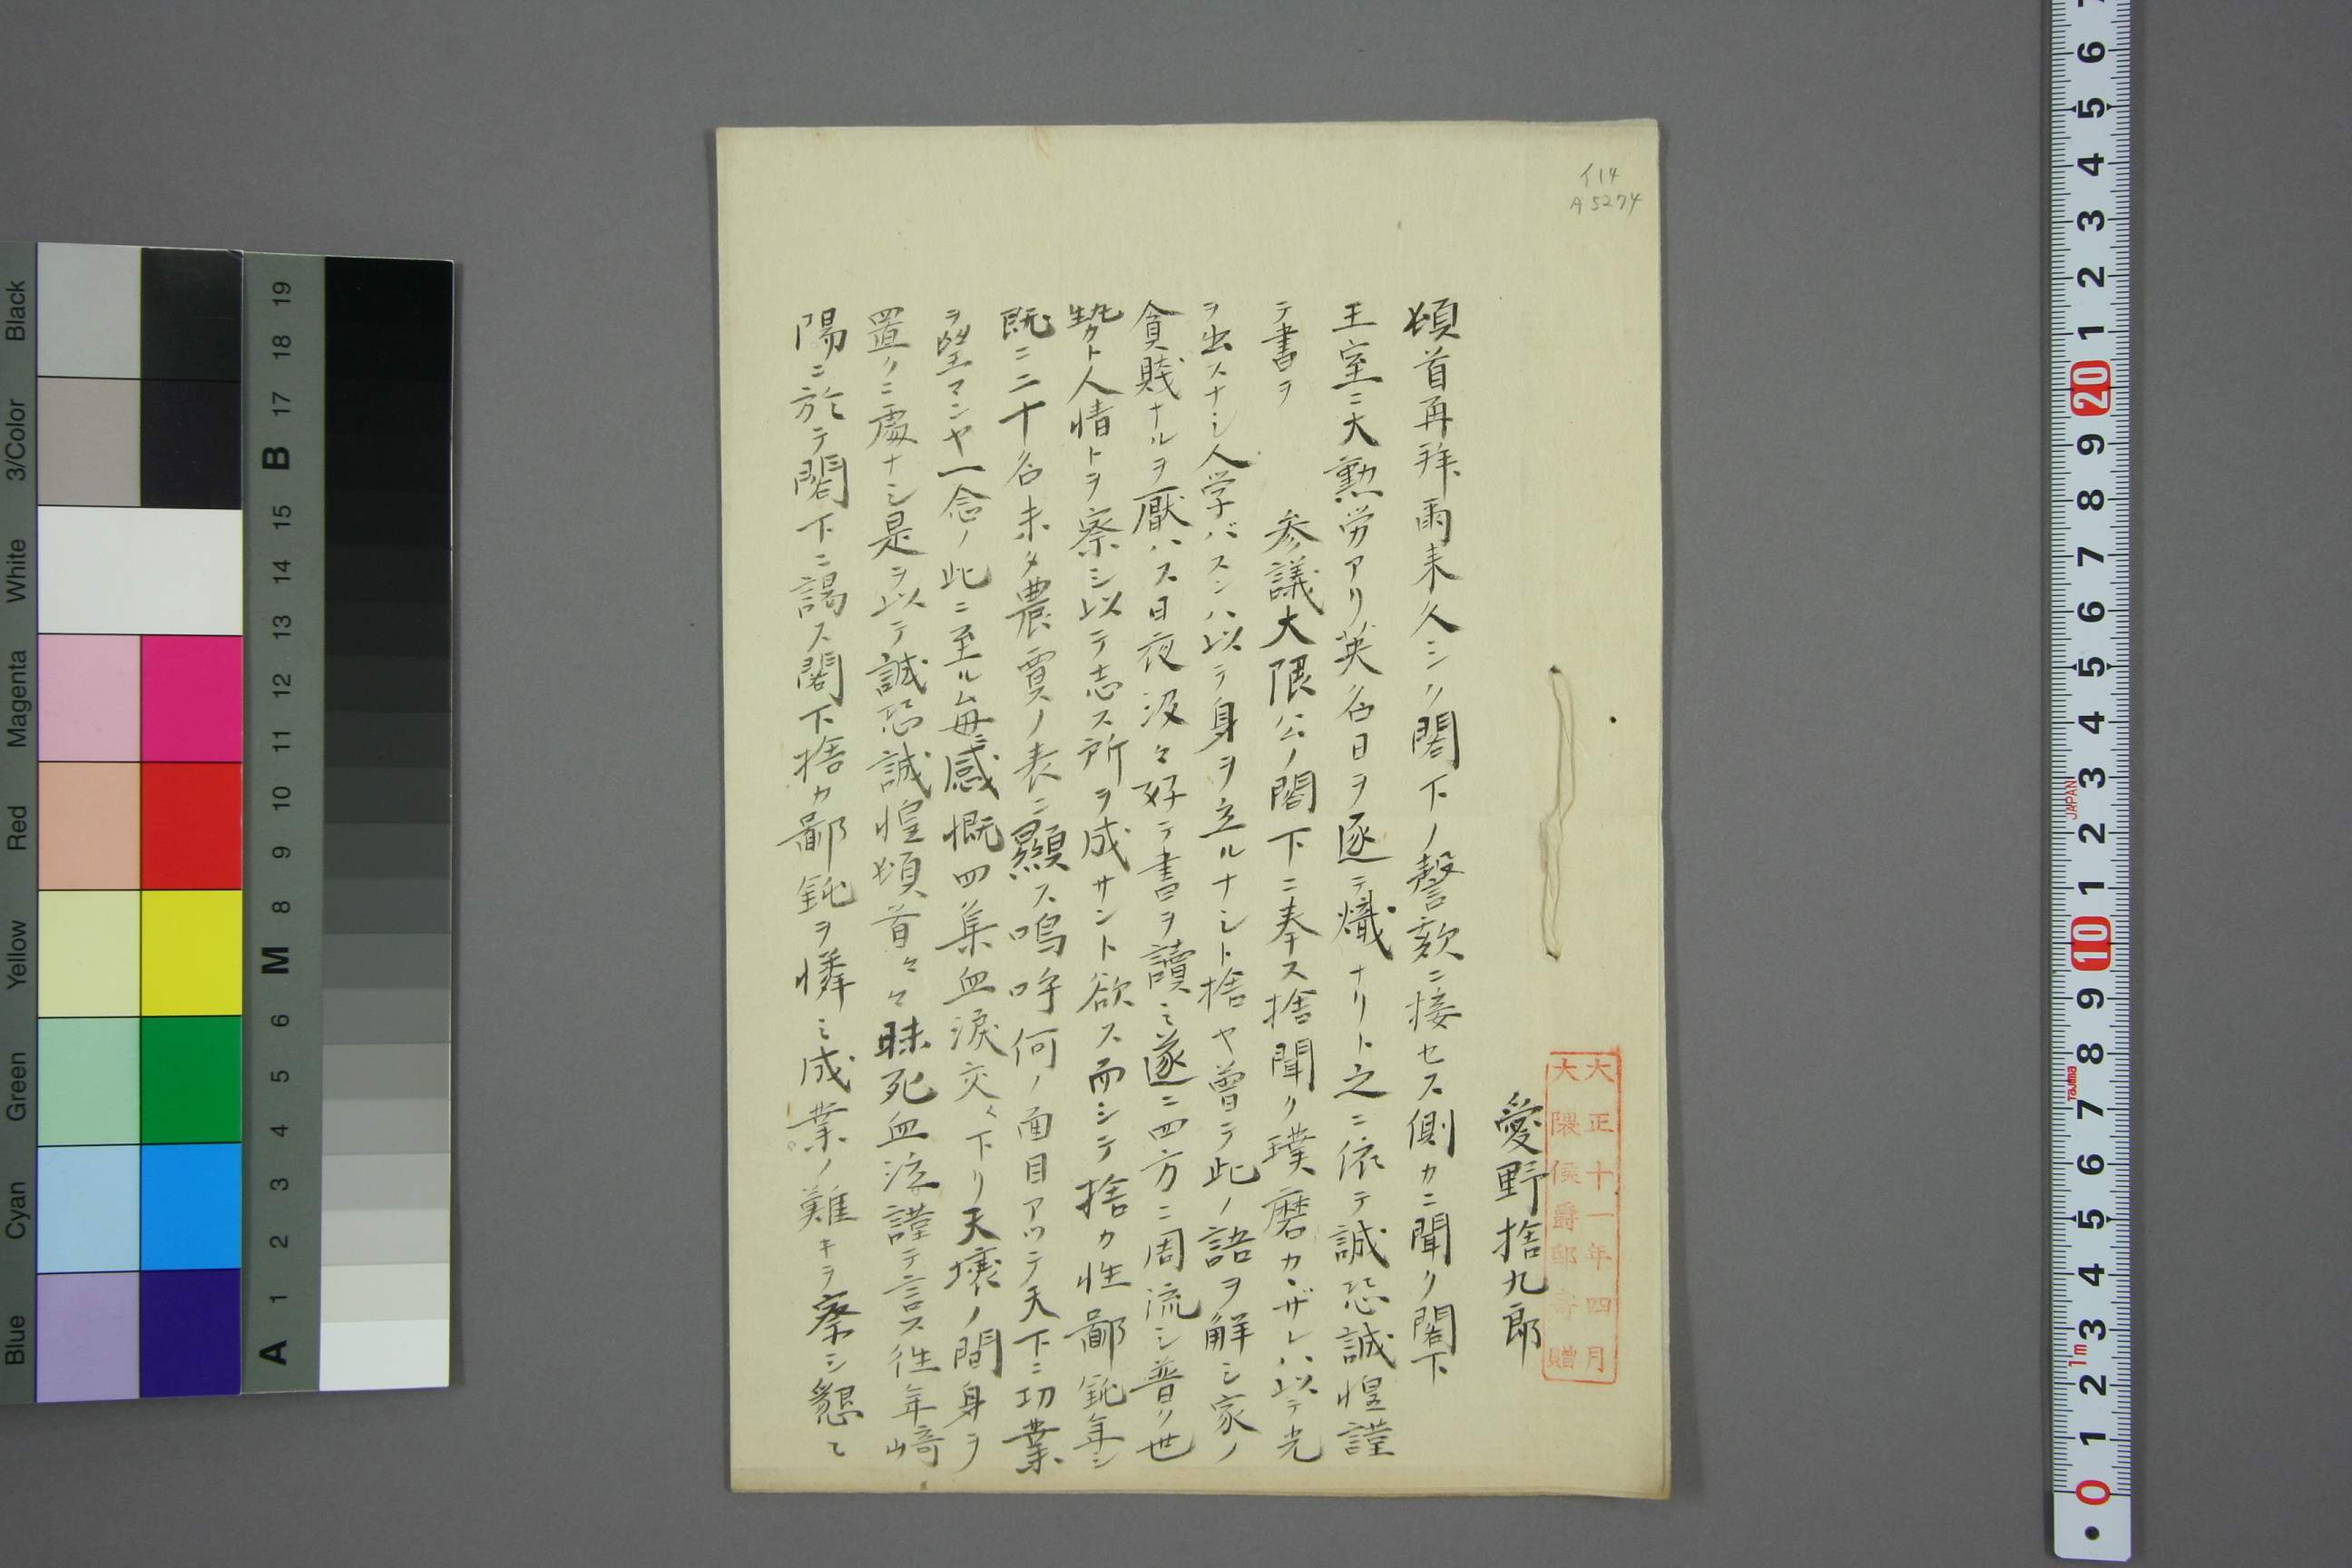 イ14
A5274
大正十一年四月
大隈侯爵邸寄贈
愛野捨九郎
頓首再拜爾来久シク閣下ノ謦欬ニ接セス側カニ聞ク閣下
王室ニ大勲労アリ英名日ヲ逐テ熾ナリト之ニ依テ誠恐誠惶謹
テ書ヲ　参議大隈公ノ閣下ニ奉ス捨聞ク璞磨カザレハ以テ光
ヲ出スナシ人学バスンハ以テ身ヲ立ルナシト捨ヤ曽テ此ノ語ヲ解シ家ノ
貪賎ナルヲ厭ハス日夜汲々好テ書ヲ讀ミ遂ニ四方ニ周流シ普ク世
勢ト人情トヲ察シ以テ志ス所ヲ成サント欲ス而シテ捨カ性鄙鈍年シ
既ニ二十名未タ農賈ノ表ニ顯ス嗚呼何ノ面目アツテ天下ニ功業
ヲ望マンヤ一念ノ此ニ至ル毎ニ感慨四集血涙交々下リ天壌ノ間身ヲ
置クニ處ナシ是ヲ以テ誠恐誠惶頓首々々昧死血泣謹テ言ス徃年崎
陽ニ於テ閣下ニ謁ス閣下捨カ鄙鈍ヲ憐ミ成業ノ難キヲ察シ懇
Black
3/Color
White
Magenta
Red
Yellow
Green
Cyan
Blue
19
18
17
B
15
14
13
12
11
10
9
8
M
6
5
4
3
2
1
A
7
6
5
4
3
2
1
20
9
8
7
6
5
4
JAPAN
3
2
1
10
9
8
Tajima
7
6
5
4
3
1m
2
1
0